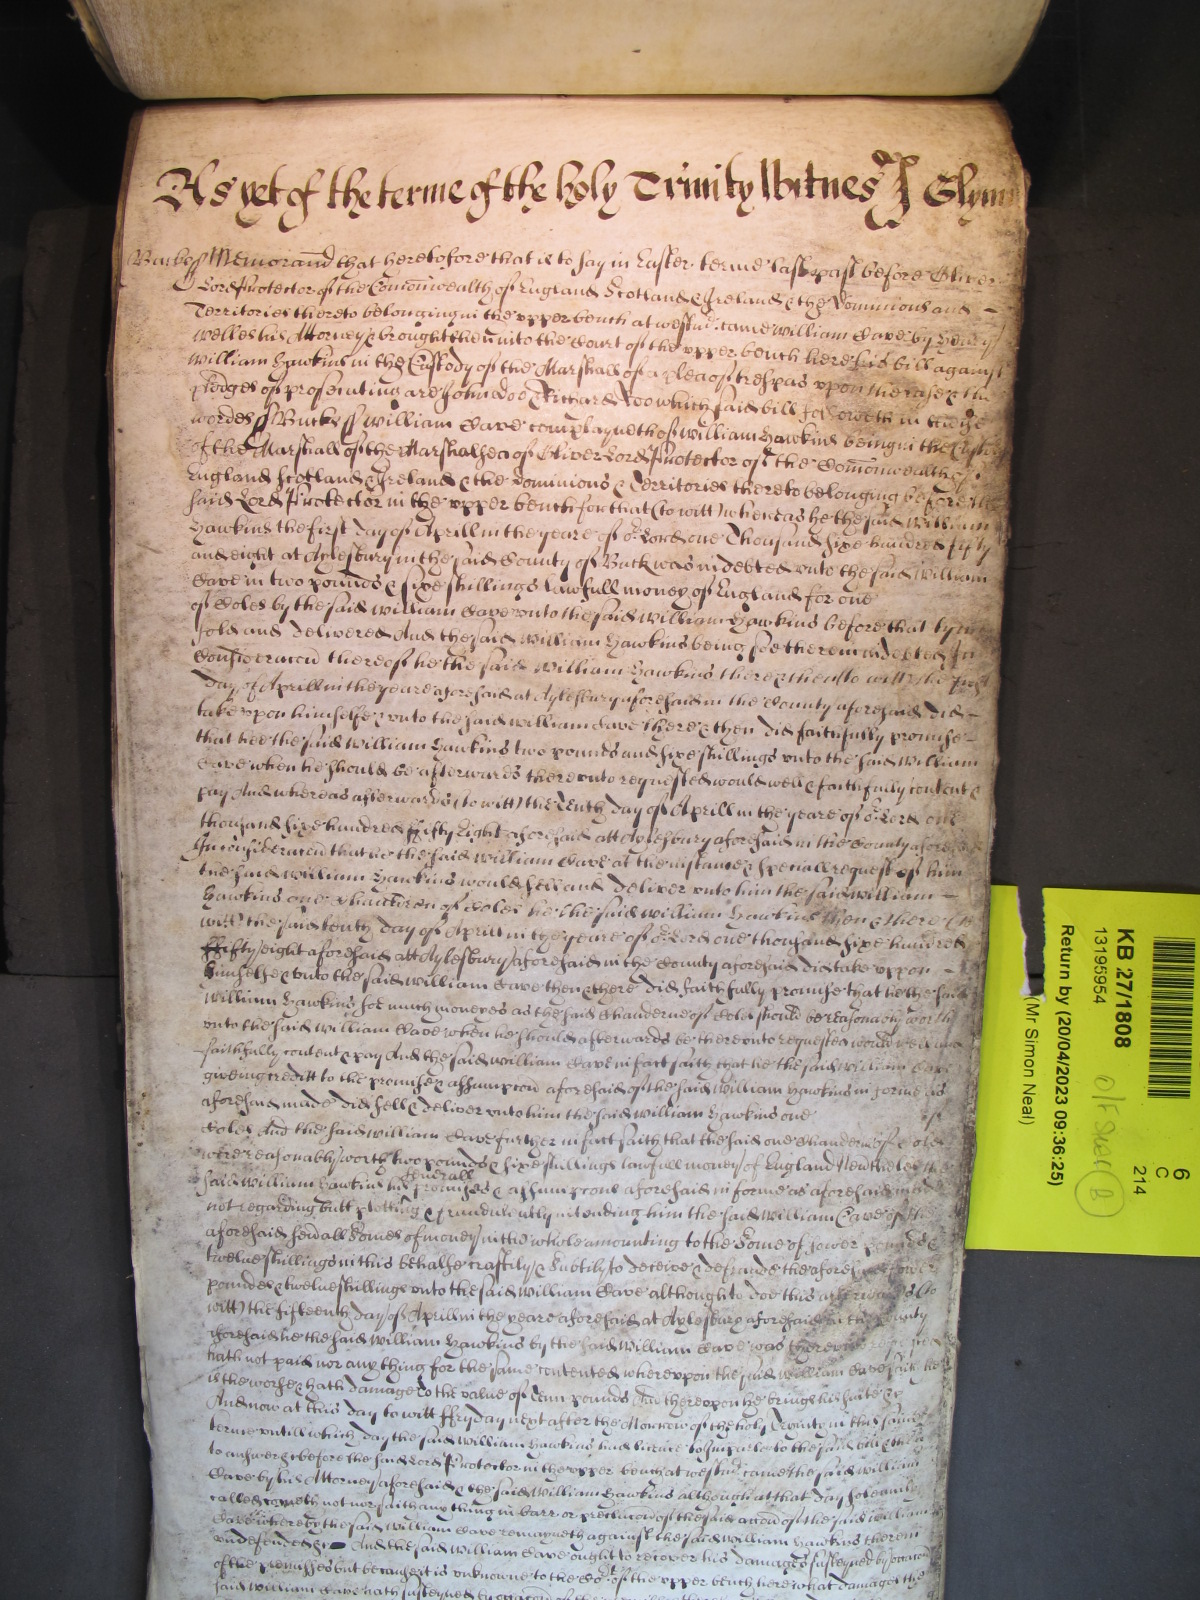 As yet of the terme of the holy Trinity Witnes J Glynn
Bucks ss Memorand that heretofore that is to say in Easter terme last past before Oliver
Lord Protector of the Comonwealth of England Scotland & Ireland & the Dominions and
Territories thereto belonging in the upper bench at westmr came William Cave by Henry
Welles his Attorney & brought then into the Court of the upper bench here his bill against
William Hawkins in the Custody of the Marshall of a plea of trespas upon the case & the
pledges of prosecuting are John Doo & Richard Roo which said bill followeth in these
wordes ss Bucks ss William Cave complayneth of William Hawkins being in the Custody
of the Marshall of the Marshalsea of Oliver Lord Protector of the Comonwealth of
England Scotland & Ireland & the Dominions & Territories thereto belonging before the
said Lord Protector in the upper bench for that (to witt) whereas he the said William
Hawkins the first day of Aprill in the yeare of or Lord one Thousand sixe hundred fifty
and eight at Aylesbury in the said County of Buck was indebted unto the said William
Cave in two pounds & sixe shillings lawfull money of England for one
of Coles by the said William Cave unto the said William Hawkins before that tyme
sold and delivered And the said William Hawkins being soe therein indebted in
Consideracon thereof he the said William Hawkins there & then (to witt) the first
day of Aprill in the yeare aforesaid at Aylesbury aforesaid in the County aforesaid did
take upon himselfe & unto the said William Cave there & then did faithfully promise
that hee the said William Hawkins two pounds and sixe shillings unto the said William
Cave when he should be afterwards thereunto requested would well & faithfully content &
pay And whereas afterwards (to witt) the Tenth day of Aprill in the yeare of or Lord one
thousand sixe hundred ffifty Eight aforesaid att Aylesbury aforesaid in the County aforesaid
In consideracon that he the said William Cave at the instance & speciall request of him
the said William Hawkins would sell and deliver unto him the said William
Hawkins one of Coles he the said William Hawkins then & there (to
witt) the said tenth day of Aprill in the yeare of or Lord one thousand sixe hundred
ffifty eight aforesaid att Aylesbury aforesaid in the County aforesaid did take uppon
himselfe & unto the said William Cave then & there did faithfully promise that he the said
William Hawkins soe much moneyes as the said of Coles should be reasonably worth
unto the said William Cave when he should afterwards be thereunto requested would well and
faithfully content & pay And the said William Cave in fact saith that he the said William Cave
giveing creditt to the promise & assumpcon aforesaid of the said William Hawkins in forme as
aforesaid made did sell & deliver unto him the said William Hawkins one of
Coles And the said William Cave further in fact saith that the said one of Coles
were reasonably worth two pounds & sixe shillings lawfull money of England Neverthelesse the
said William Hawkins his severall promises & assumpcons aforesaid in forme as aforesaid made
not regarding butt plotting & fraudulently intending him the said William Cave of the
aforesaid sevall Somes of money in the whole amounting to the Some of fower pounds &
twelve shillings in this behalfe craftily & subtily to deceive & defraude the aforesaid fower
pounds & twelve shillings unto the said William Cave although to doe this afterwards (to
witt) the fifteenth day of Aprill in the yeare aforesaid at Aylesbury aforesaid in the County
aforesaid he the said William Hawkins by the said William Cave was thereunto requested
hath not paid nor any thing for the same contented whereupon the said William Cave saith he
is the worse & hath damage to the value of Tenn pounds And thereupon he brings his suite &c
And now at this day to witt ffryday next after the Morrow of the holy Trinity in this same
terme untill which day the said William Hawkins had licence to imparle to the said bill & then
to answer & before the said Lord Protector in the upper bench at westmr came the said William
Cave by his Attorney aforesaid & the said William Hawkins although at that day solemnly
called cometh not nor saith any thing in barr or preclusion of the said accon of the said William
Cave whereby the said William Cave remayneth against the said William Hawkins therein
undefended &c And the said William Cave ought to recover his damages susteyned by occacon
of the premisses but because it is unknowne to the Cort of the upper bench here what damages the
said William Cave hath susteyned by occacon of the
6
C
214
KB 27/1808
13195954
O/F Shelf B
Return by (20/04/2023 09:36:25)
(Mr Simon Neal)